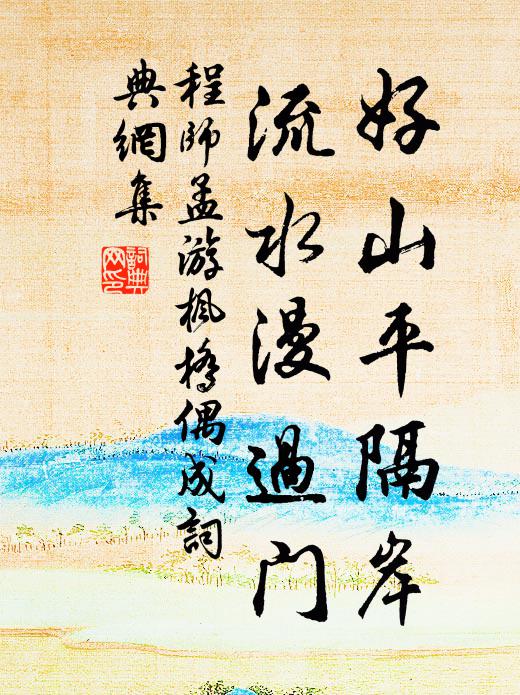 好山平隔岸
流水漫過門
程師孟游楓橋偶成詞
典網集
詞典
网印